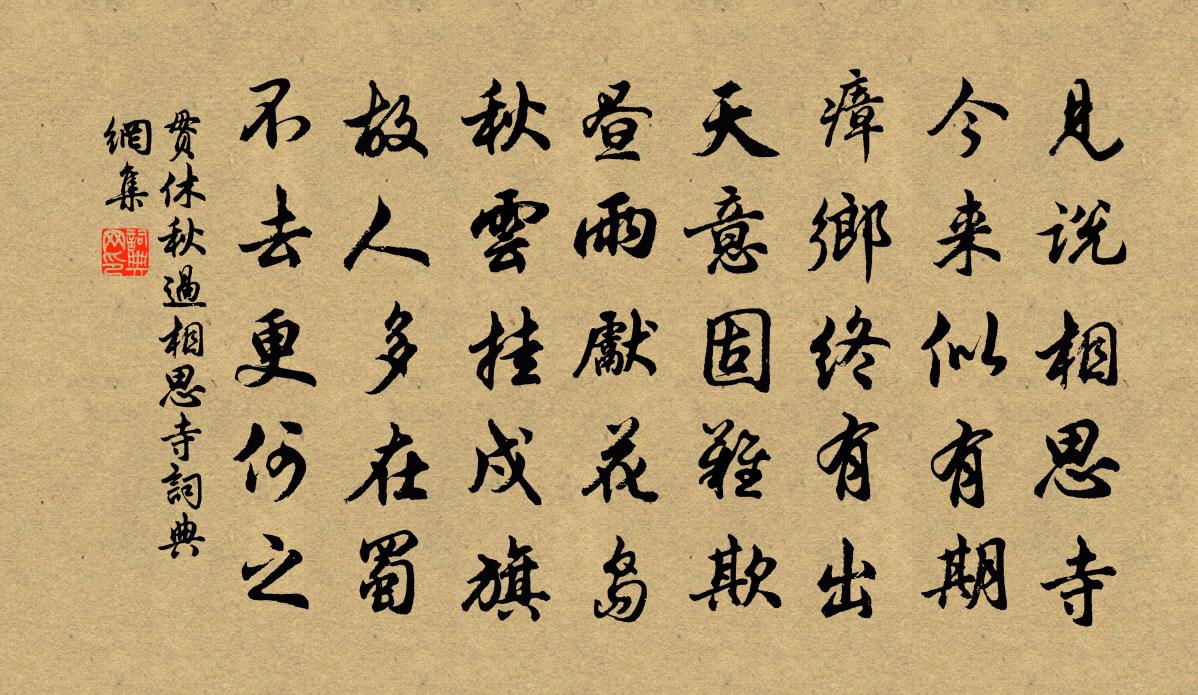 見說相思寺
今来似有期
瘴鄉終有出
天意固難欺
昼雨獻花島
秋雲挂戍旗
故人多在蜀
不去更何之
貫休秋過相思寺詞典
網集
詞典
网印